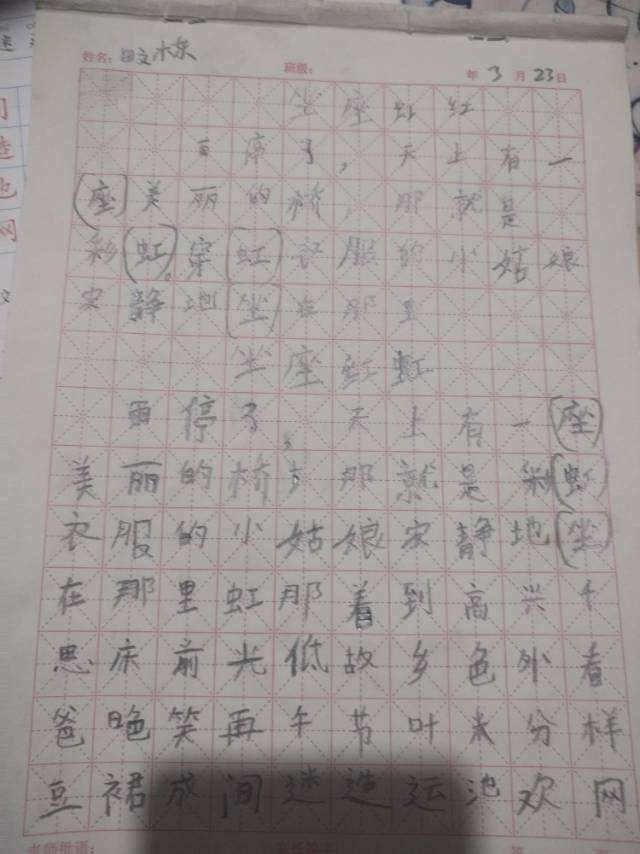 姓名：田文
班级：
年 3 月 23 日
坐 座 虹 红
停了，天上有一
(座)美丽的桥，那就是
彩(虹)。穿(红)衣服的小姑娘
安静地(坐)在那里
坐 座 红 虹
雨停了，天上有一(座)
美丽的桥，那就是彩(虹)
衣服的小姑娘安静地(坐)
在那里虹那着到高兴千
思床前光低故乡色外看
爸晚笑再午节叶米分样
豆裙成间迷造运池欢网
老师批语：